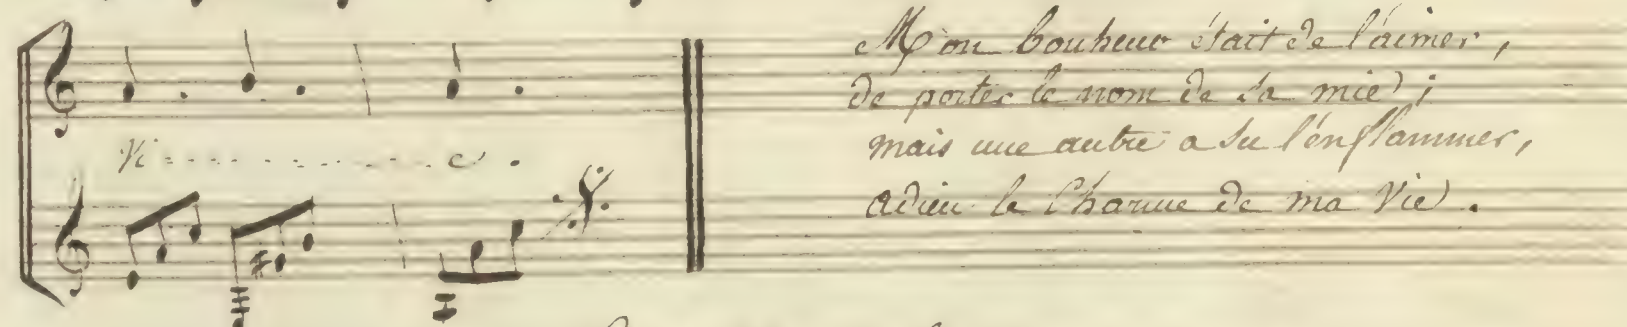 Vi - - - - - - - - - - e.
Mon bonheur était de l'aimer,
de porter le nom de sa mie;
mais une autre a su l'enflammer,
adieu le Charme de ma Vie.